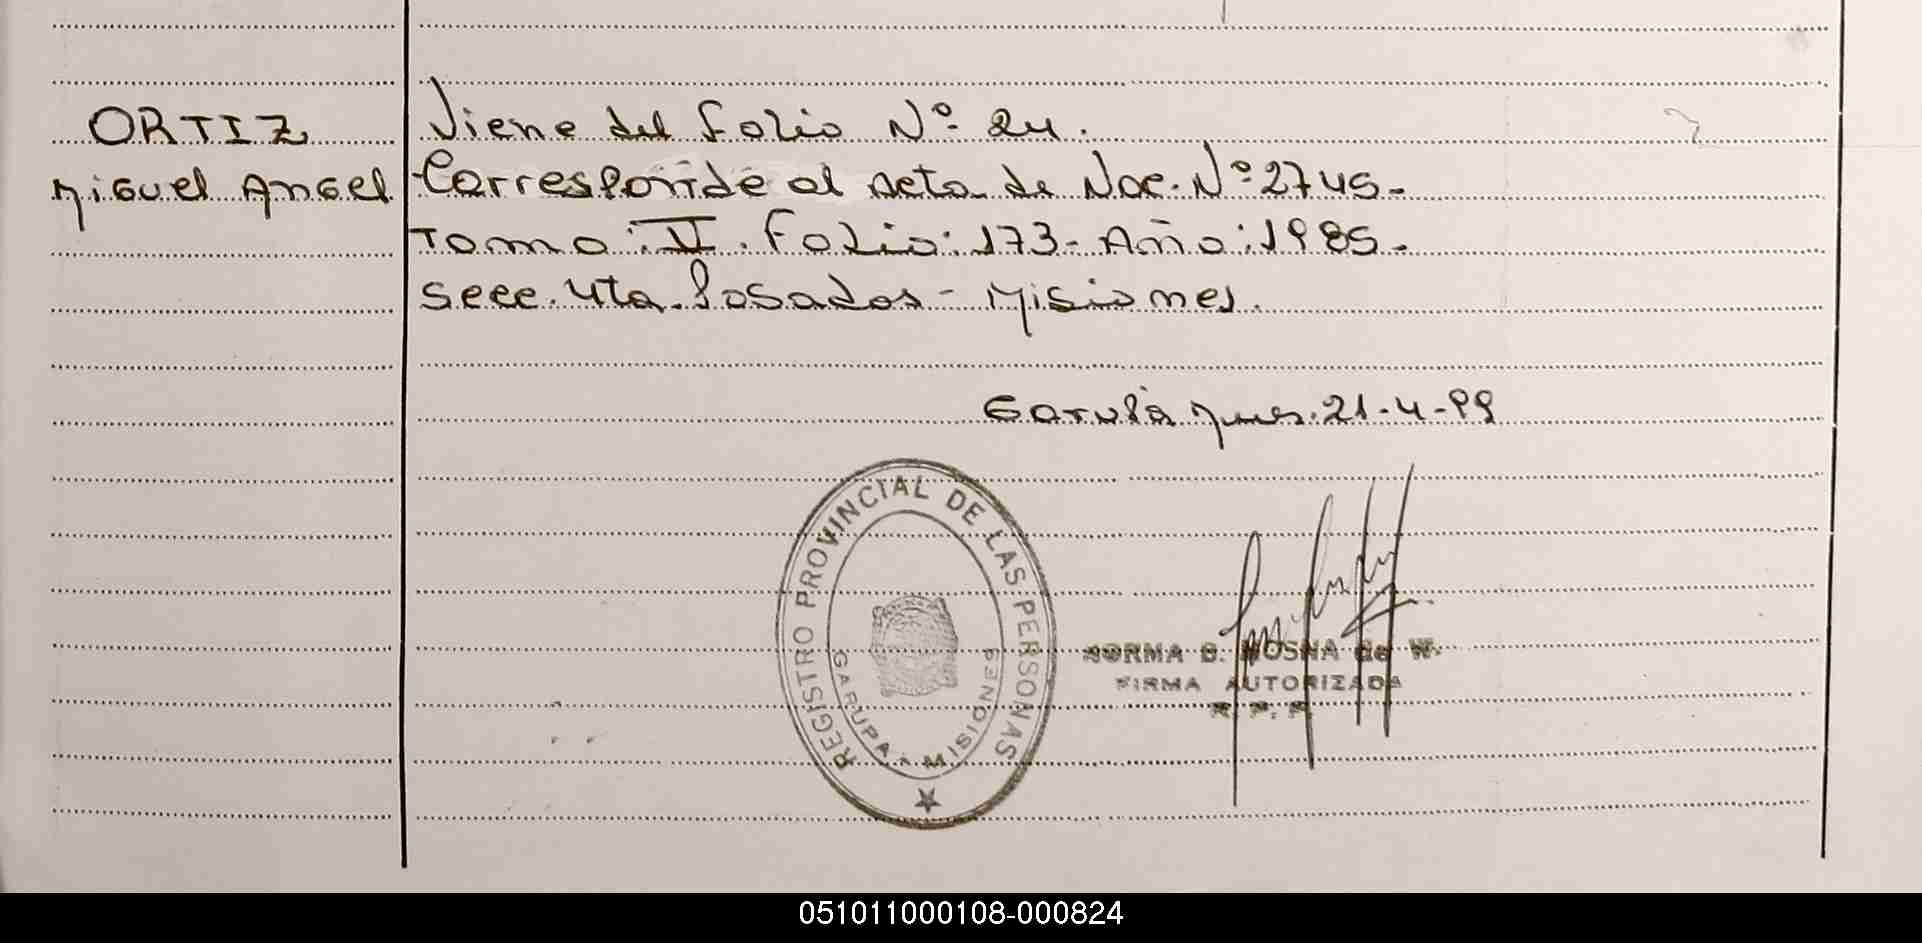 ORTIZ
Miguel Angel
Viene del Folio Nº 24.
Corresponde al acta de Nac. Nº 2745-
Tomo: V. Folio: 173- Año: 1985-
Secc. 4ta. Posadas - Misiones.
Garupá Mnes. 21-4-99
REGISTRO PROVINCIAL DE LAS PERSONAS
GARUPA - MISIONES
NORMA B. NOSNA de W.
FIRMA AUTORIZADA
R. P. P.
051011000108-000824